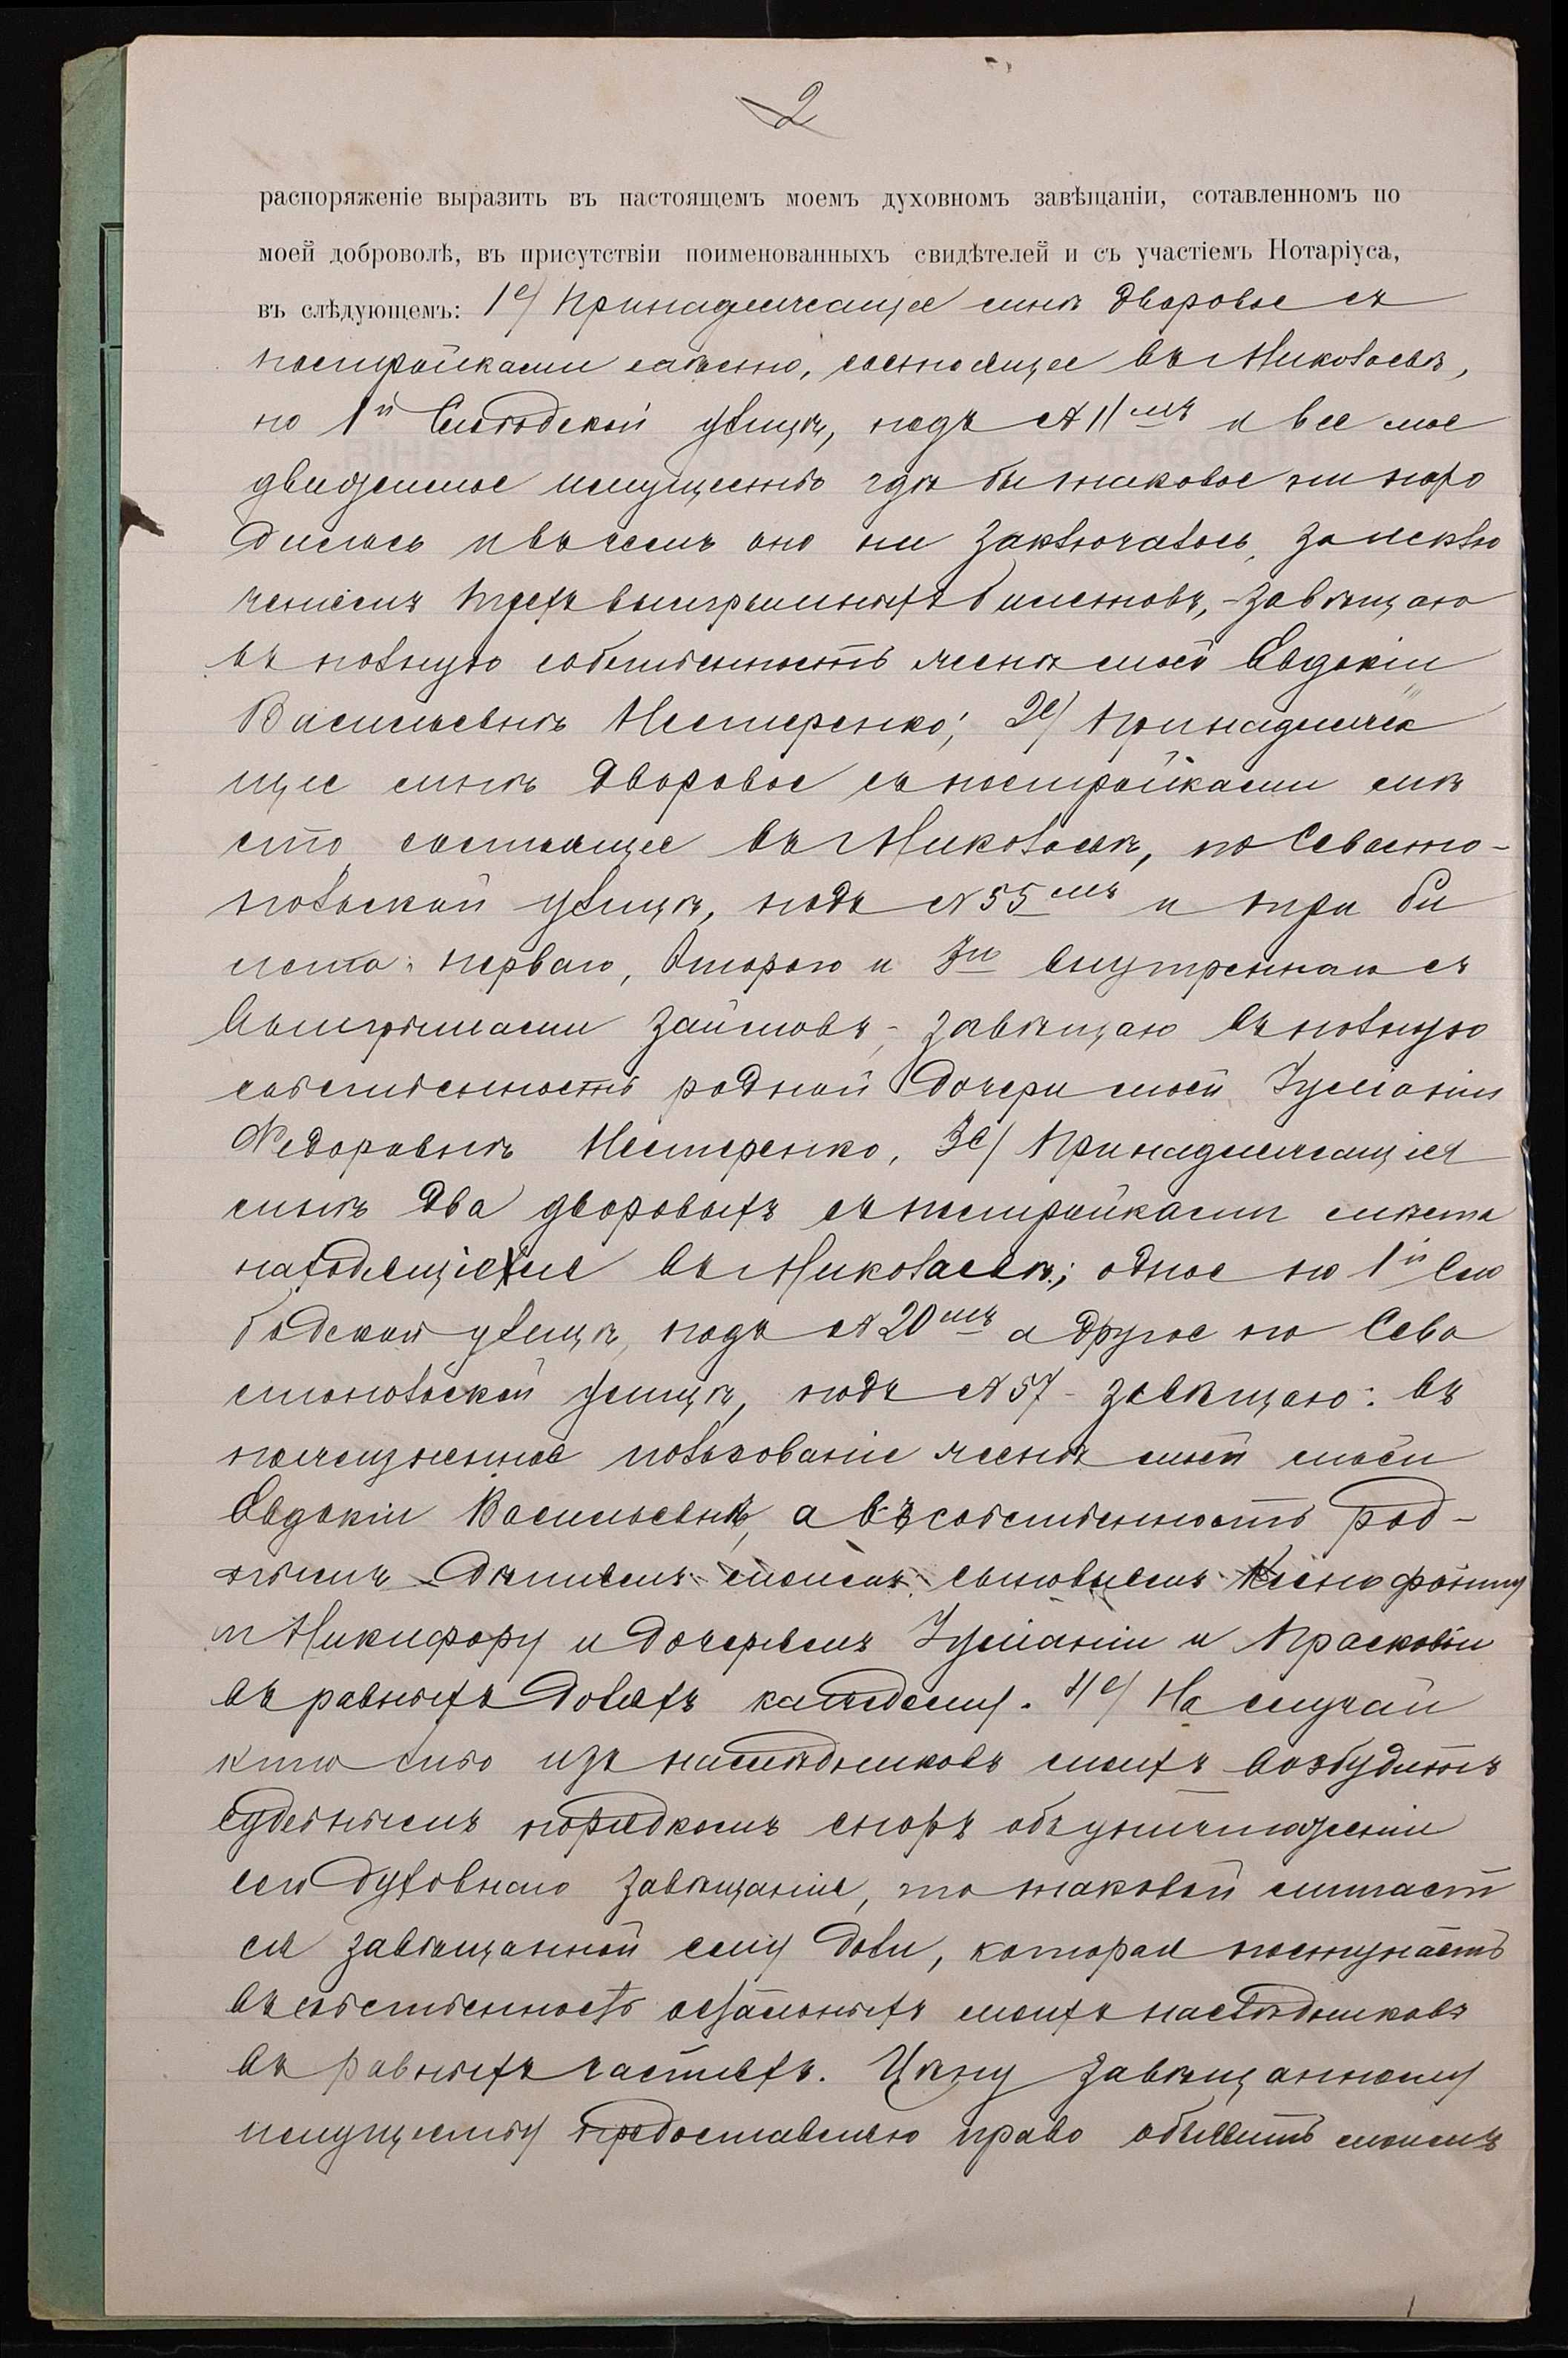 2
распоряженіе выразить въ настоящемъ моемъ духовномъ завѣщаніи, сотавленномъ по
моей доброволѣ, въ присутствіи поименованныхъ свидѣтелей и съ участіемъ Нотаріуса,
въ слѣдующемъ: 1е/ Принадлежащее мнѣ дворовое съ
постройками мѣсто, состоящее въ г Николаевѣ,
по 1й Слободской улицѣ, подъ № 11мъ и все мое
движимое имущество гдѣ бы таковое ни нахо
дилось и въ чемъ оно ни заключалось, за исклю
ченіемъ трехъ выигрышныхъ билетовъ, - завѣщаю
въ полную собственность женѣ моей Евдокіи
Васильевнѣ Нестеренко; 2е/ Принадлежа
щее мнѣ дворовое съ постройками мѣ
сто состоящее въ г Николаевѣ, по Севасто-
польской улицѣ, подъ № 55мъ и три би
лета: перваго, второго и 3го внутренняго съ
выигрышами займовъ, - завѣщаю въ полную
собственность родной дочери моей Іуліаніи
Федоровнѣ Нестеренко, 3е/ Принадлежащія
мнѣ два дворовыхъ съ постройками мѣста
находящіяся въ г Николаевѣ; одное по 1й Сло
бодской улицѣ, подъ № 20мъ а другое по Сева
стопольской улицѣ, подъ № 57 - завѣщаю: въ
пожизненное пользованіе женѣ моей моей
Евдокіи Васильевнѣ, а въ собственность род-
нымъ дѣтямъ моимъ: сыновьямъ Ксенофонту
и Никифору и дочерямъ Іуліаніи и Прасковіи
въ равныхъ доляхъ каждому. 4е/ На случай
кто либо изъ наслѣдниковъ моихъ возбудитъ
судебнымъ порядкомъ споръ объ уничтоженіи
сего духовнаго завѣщанія, то таковой лишает
ся завѣщанной ему доли, которая поступаетъ
въ собственность остальныхъ моихъ наслѣдниковъ
въ равныхъ частяхъ. Цѣну завѣщанному
имуществу предоставляю право объявить моимъ